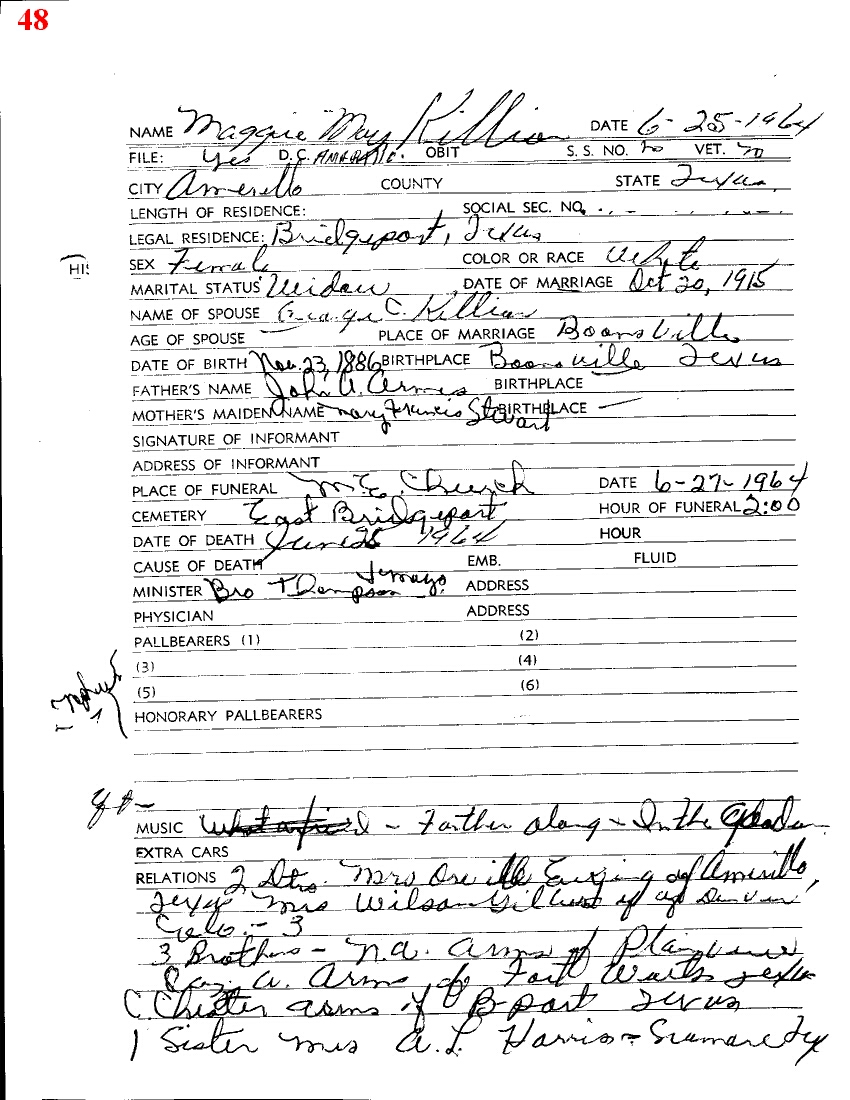 48
NAME Maggie May Killian DATE 6-25-1964
FILE: yes D.C. AMARILLO. OBIT S. S. NO. no VET. no
CITY Amerello COUNTY STATE Texas
LENGTH OF RESIDENCE: SOCIAL SEC. NO.
LEGAL RESIDENCE: Bridgeport, Texas
SEX Female COLOR OR RACE White
HIS
MARITAL STATUS Widow DATE OF MARRIAGE Oct 20, 1915
NAME OF SPOUSE George C. Killian
AGE OF SPOUSE — PLACE OF MARRIAGE Boonsville
DATE OF BIRTH Nov. 23, 1886 BIRTHPLACE Boonsville Texas
FATHER'S NAME John A. Arms BIRTHPLACE —
MOTHER'S MAIDEN NAME Mary Francis Stewart BIRTHPLACE —
SIGNATURE OF INFORMANT
ADDRESS OF INFORMANT
PLACE OF FUNERAL M.E. Church DATE 6-27-1964
CEMETERY East Bridgeport HOUR OF FUNERAL 2:00
DATE OF DEATH June 25 1964 HOUR
CAUSE OF DEATH EMB. FLUID
MINISTER Bro Thompson ADDRESS
PHYSICIAN ADDRESS
PALLBEARERS (1) (2)
(3) (4)
(5) (6)
HONORARY PALLBEARERS
MUSIC What a friend - Farther along - In the
EXTRA CARS
RELATIONS 2 Dtrs. Mrs Orville Ewing of Amerillo,
Texas Mrs Wilson of Denver
Colo. - 3
3 Brothers - N.A. Arms of Plainview
A. Arms of Fort Worth Texas
Chester Arms of Bport Texas
1 Sister Mrs A.L. Harris - Tex